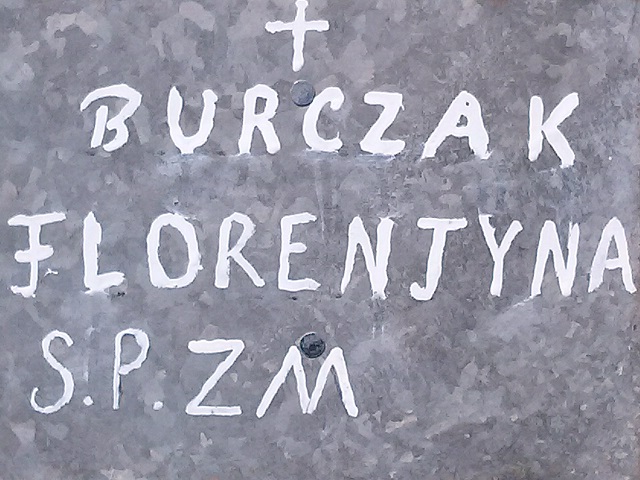 BURCZAK
FLORENTYNA
S.P. ZM